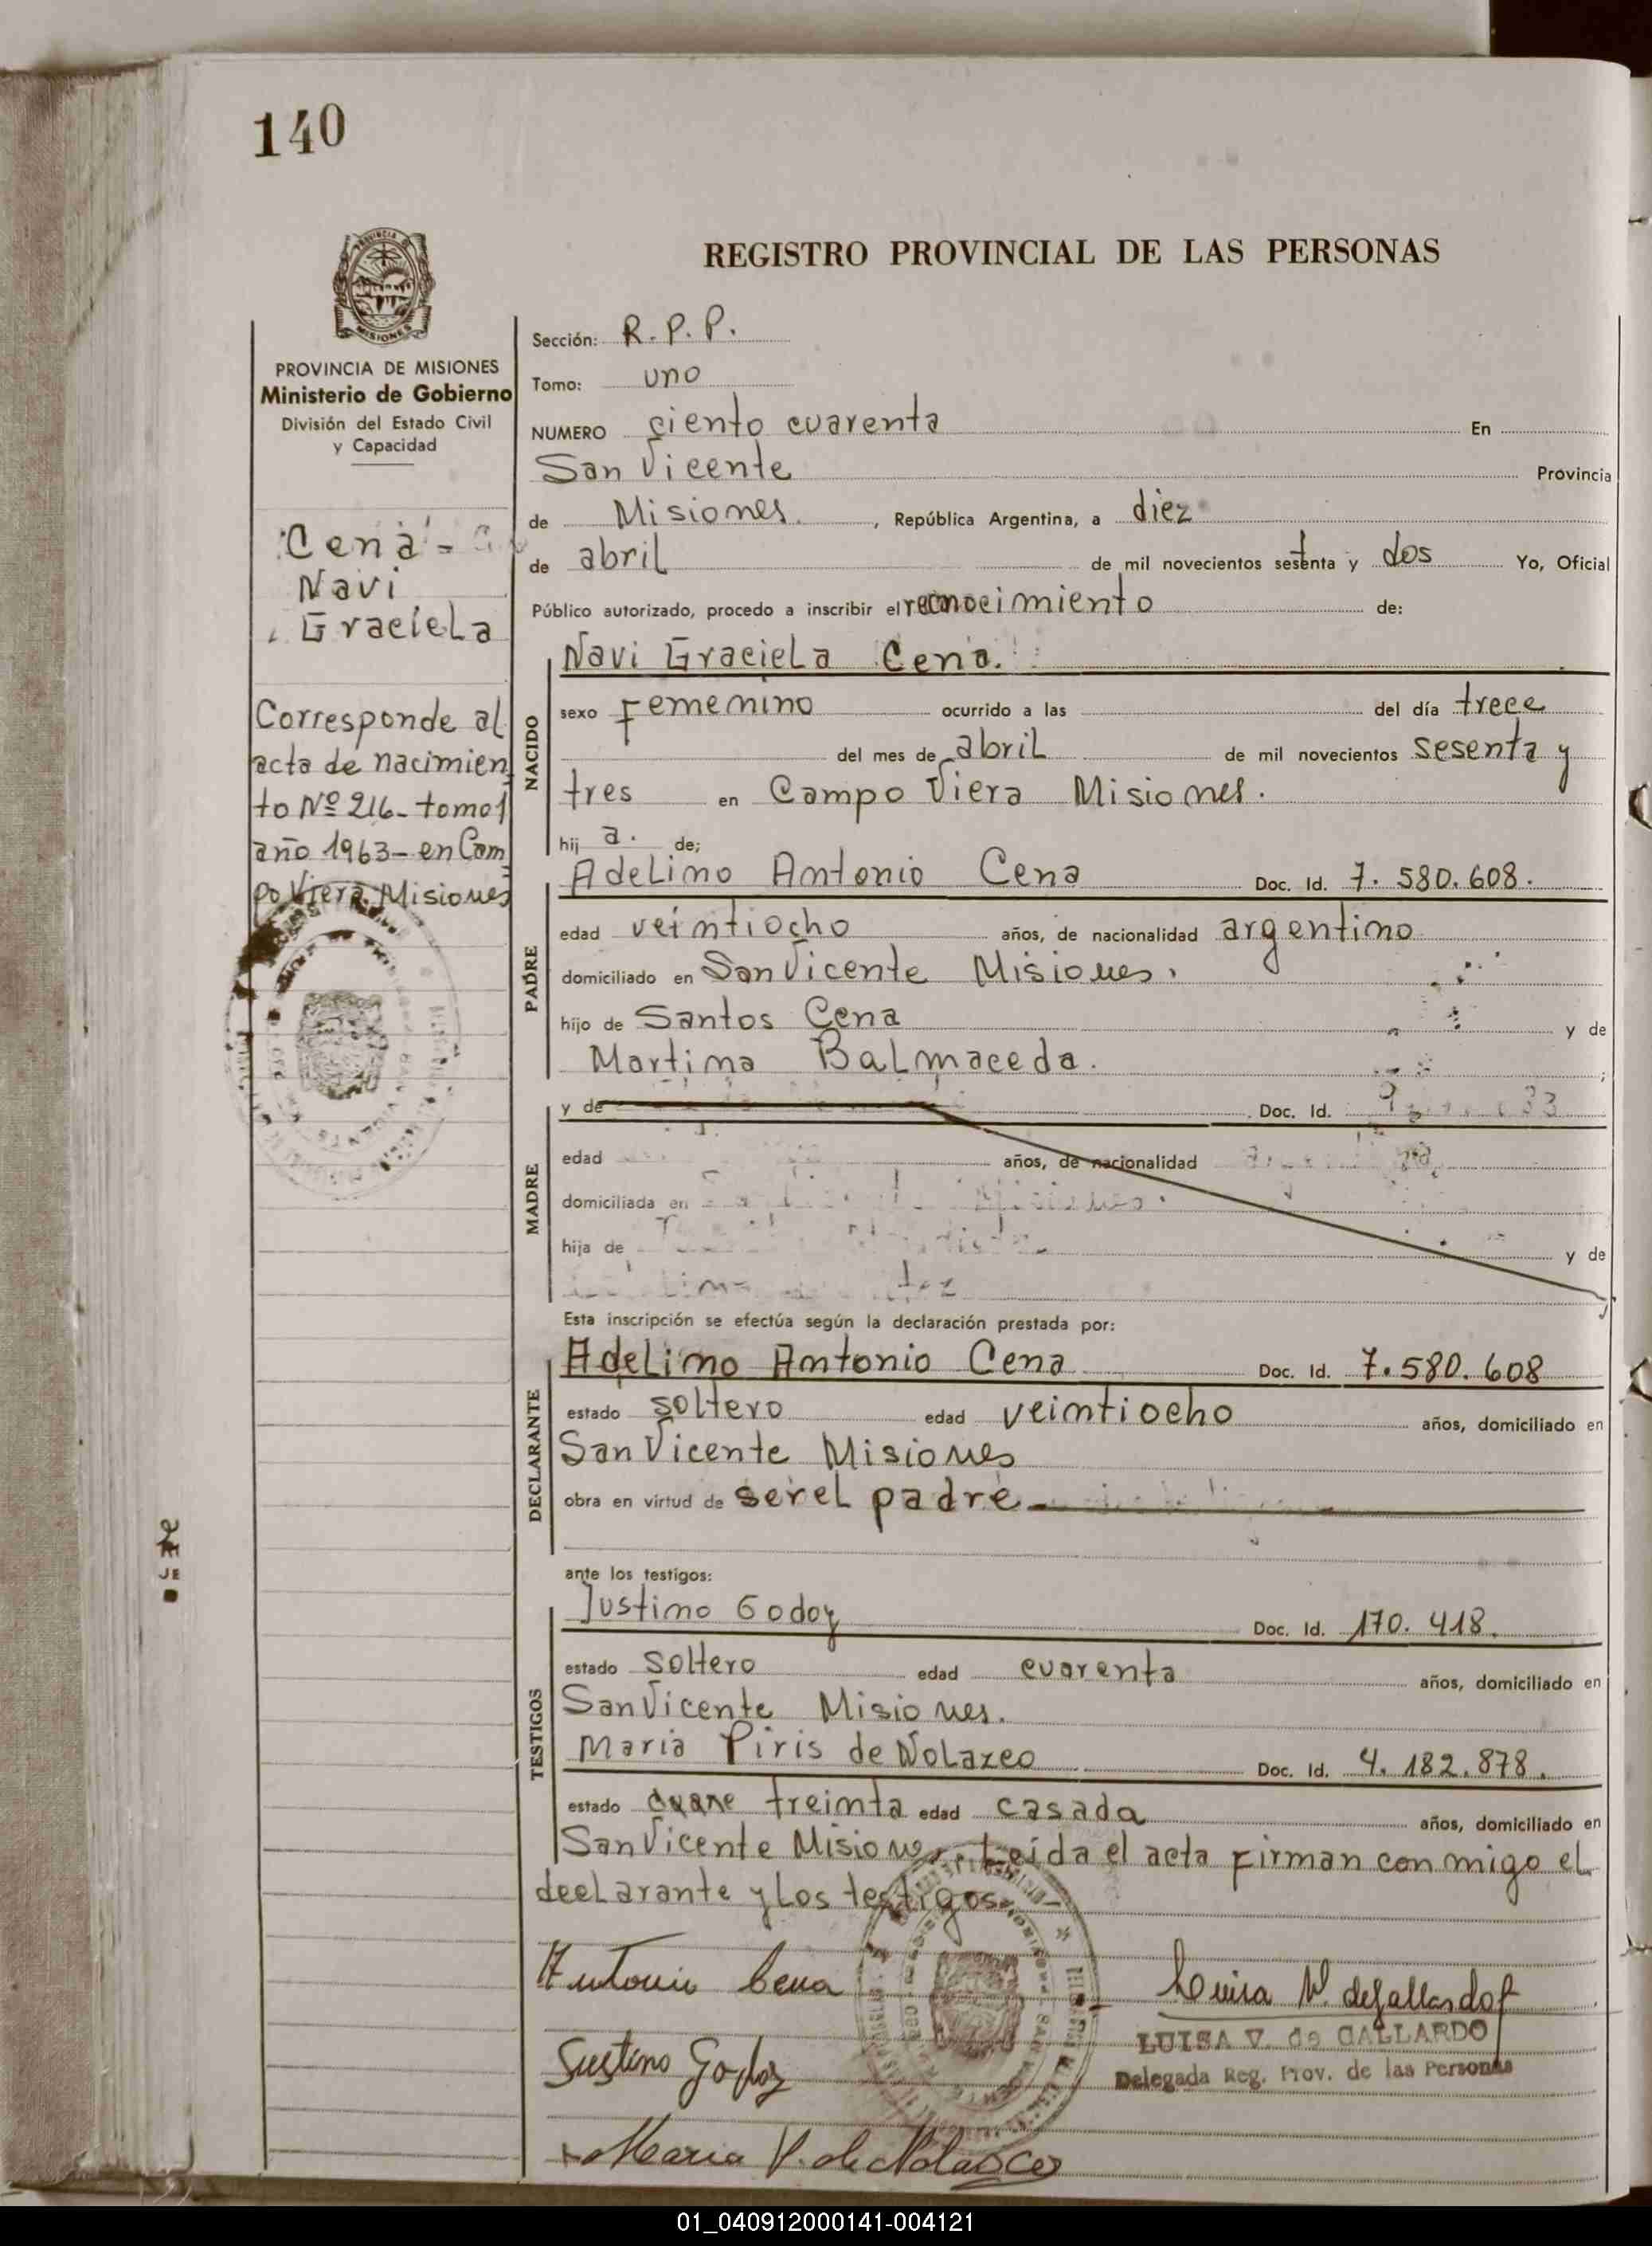 140
REGISTRO PROVINCIAL DE LAS PERSONAS
PROVINCIA DE MISIONES
Ministerio de Gobierno
División del Estado Civil
y Capacidad
Cena -
Navi
Graciela
Corresponde al
acta de nacimien
to Nº 216 - tomo 1
año 1963 - en Cam
po Viera Misiones
Sección: R. P. P.
Tomo: uno
NUMERO ciento cuarenta En
San Vicente Provincia
de Misiones , República Argentina, a diez
de abril de mil novecientos setenta y dos Yo, Oficial
Público autorizado, procedo a inscribir el reconocimiento de:
NACIDO
Navi Graciela Cena.
sexo Femenino ocurrido a las del día trece
del mes de abril de mil novecientos sesenta y
tres en Campo Viera Misiones.
hij a. de;
PADRE
Adelino Antonio Cena Doc. Id. 7.580.608.
edad veintiocho años, de nacionalidad argentino
domiciliado en San Vicente Misiones.
hijo de Santos Cena y de
Martina Balmaceda. ;
MADRE
y de Doc. Id.
edad años, de nacionalidad
domiciliada en
hija de y de
Esta inscripción se efectúa según la declaración prestada por:
DECLARANTE
Adelino Antonio Cena Doc. Id. 7.580.608
estado soltero edad veintiocho años, domiciliado en
San Vicente Misiones
obra en virtud de ser el padre
ante los testigos:
TESTIGOS
Justino Godoy Doc. Id. 170.418.
estado soltero edad cuarenta años, domiciliado en
San Vicente Misiones.
Maria Piris de Nolazco Doc. Id. 4.182.878.
estado treinta edad casada años, domiciliado en
San Vicente Misiones. Leída el acta firman conmigo el
declarante y los testigos
Antonio Cena
Luisa V. de Gallardo
LUISA V. de GALLARDO
Delegada Reg. Prov. de las Personas
Justino Godoy
Maria P. de Nolasco
01_040912000141-004121